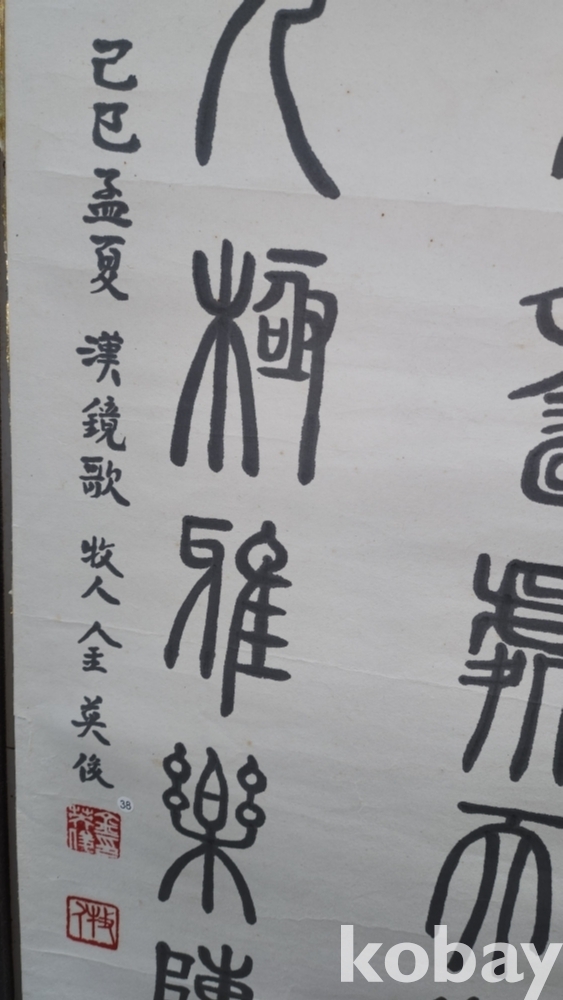 壽處天
極雅樂陳
己巳孟夏 漢鏡歌 牧人 金英俊
38
kobay